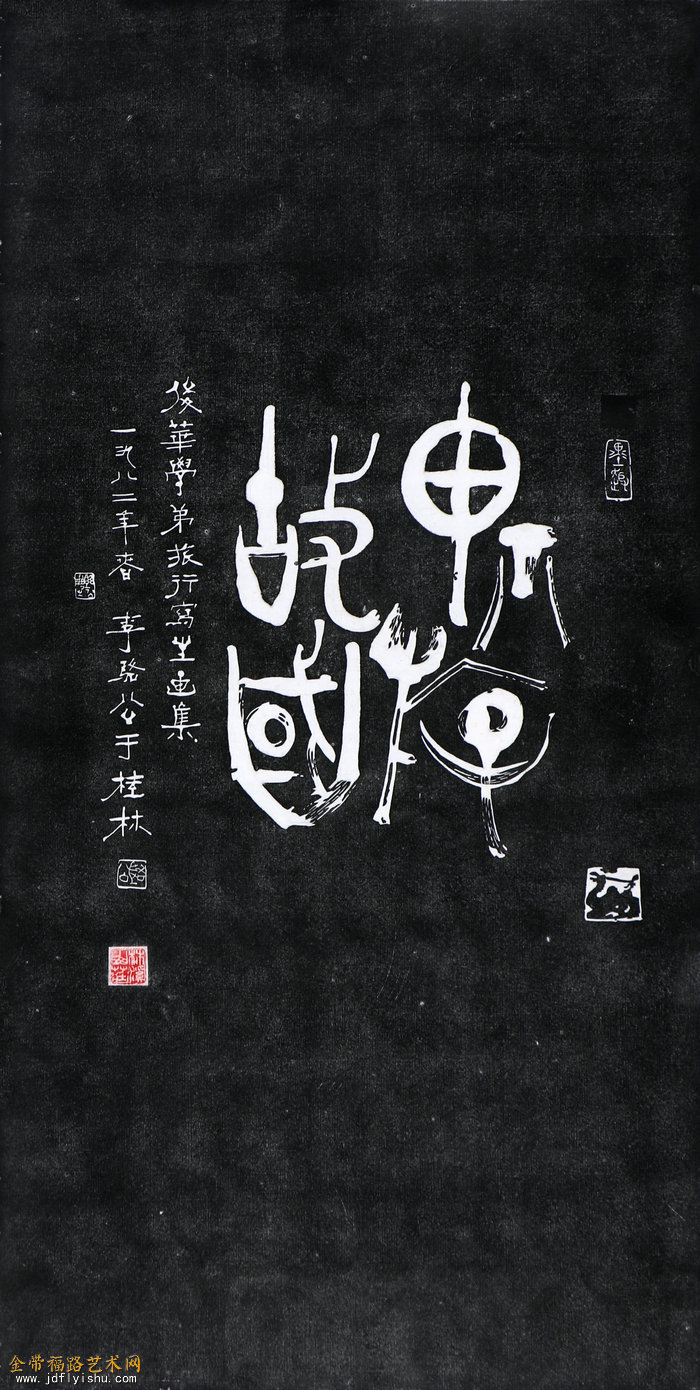 神游
故國
後華學弟旅行寫生画集
一九八二年春 李駱公于桂林
金带福路艺术网
www.jdflyishu.com